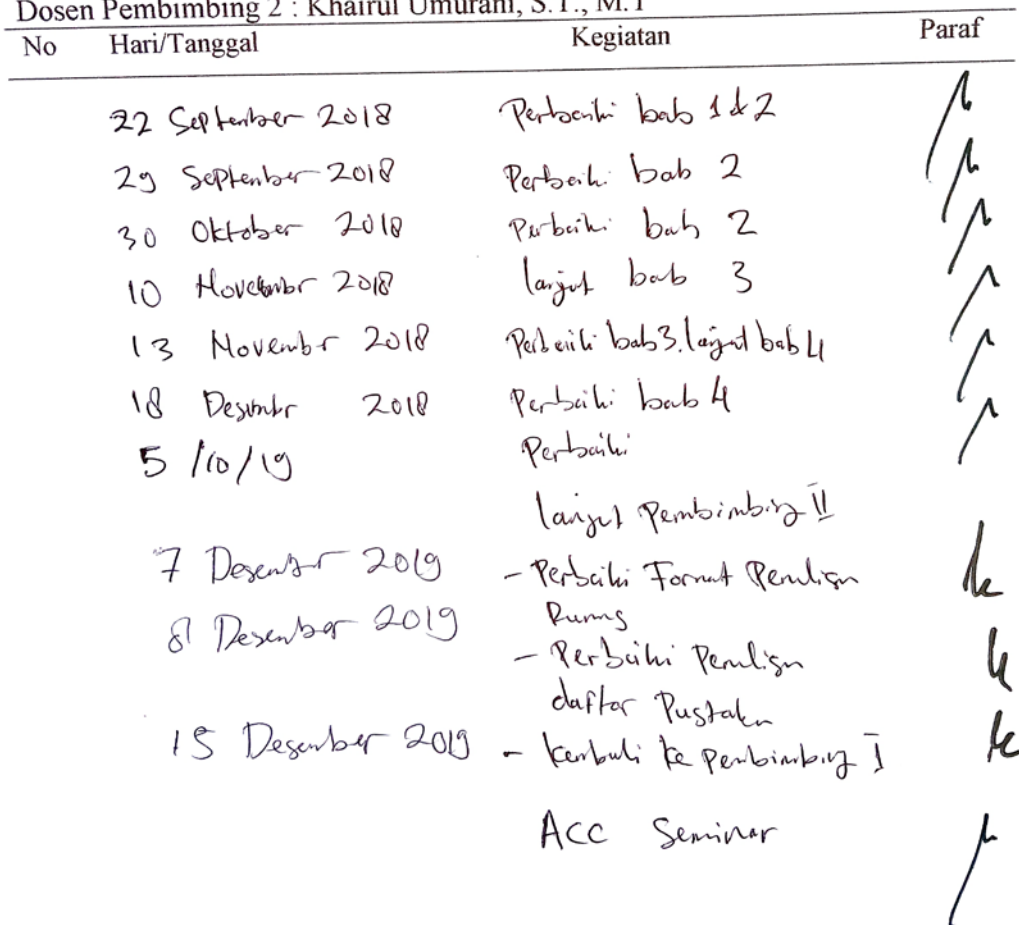 Dosen Pembimbing 2 : Khairul Umurani, S.T., M.T
No Hari/Tanggal Kegiatan Paraf
22 September 2018 Perbaiki bab 1 & 2
29 September 2018 Perbaiki bab 2
30 Oktober 2018 Perbaiki bab 2
10 November 2018 lanjut bab 3
13 Novembr 2018 Perbaiki bab 3. lanjut bab 4
18 Desembr 2018 Perbaiki bab 4
5 /10/19 Perbaiki
lanjut Pembimbing II
7 Desember 2019 - Perbaiki Format Penulisan
Rumus
8 Desember 2019
- Perbaiki Penulisan
daftar Pustaka
15 Desember 2019 - kembali ke pembimbing I
ACC Seminar